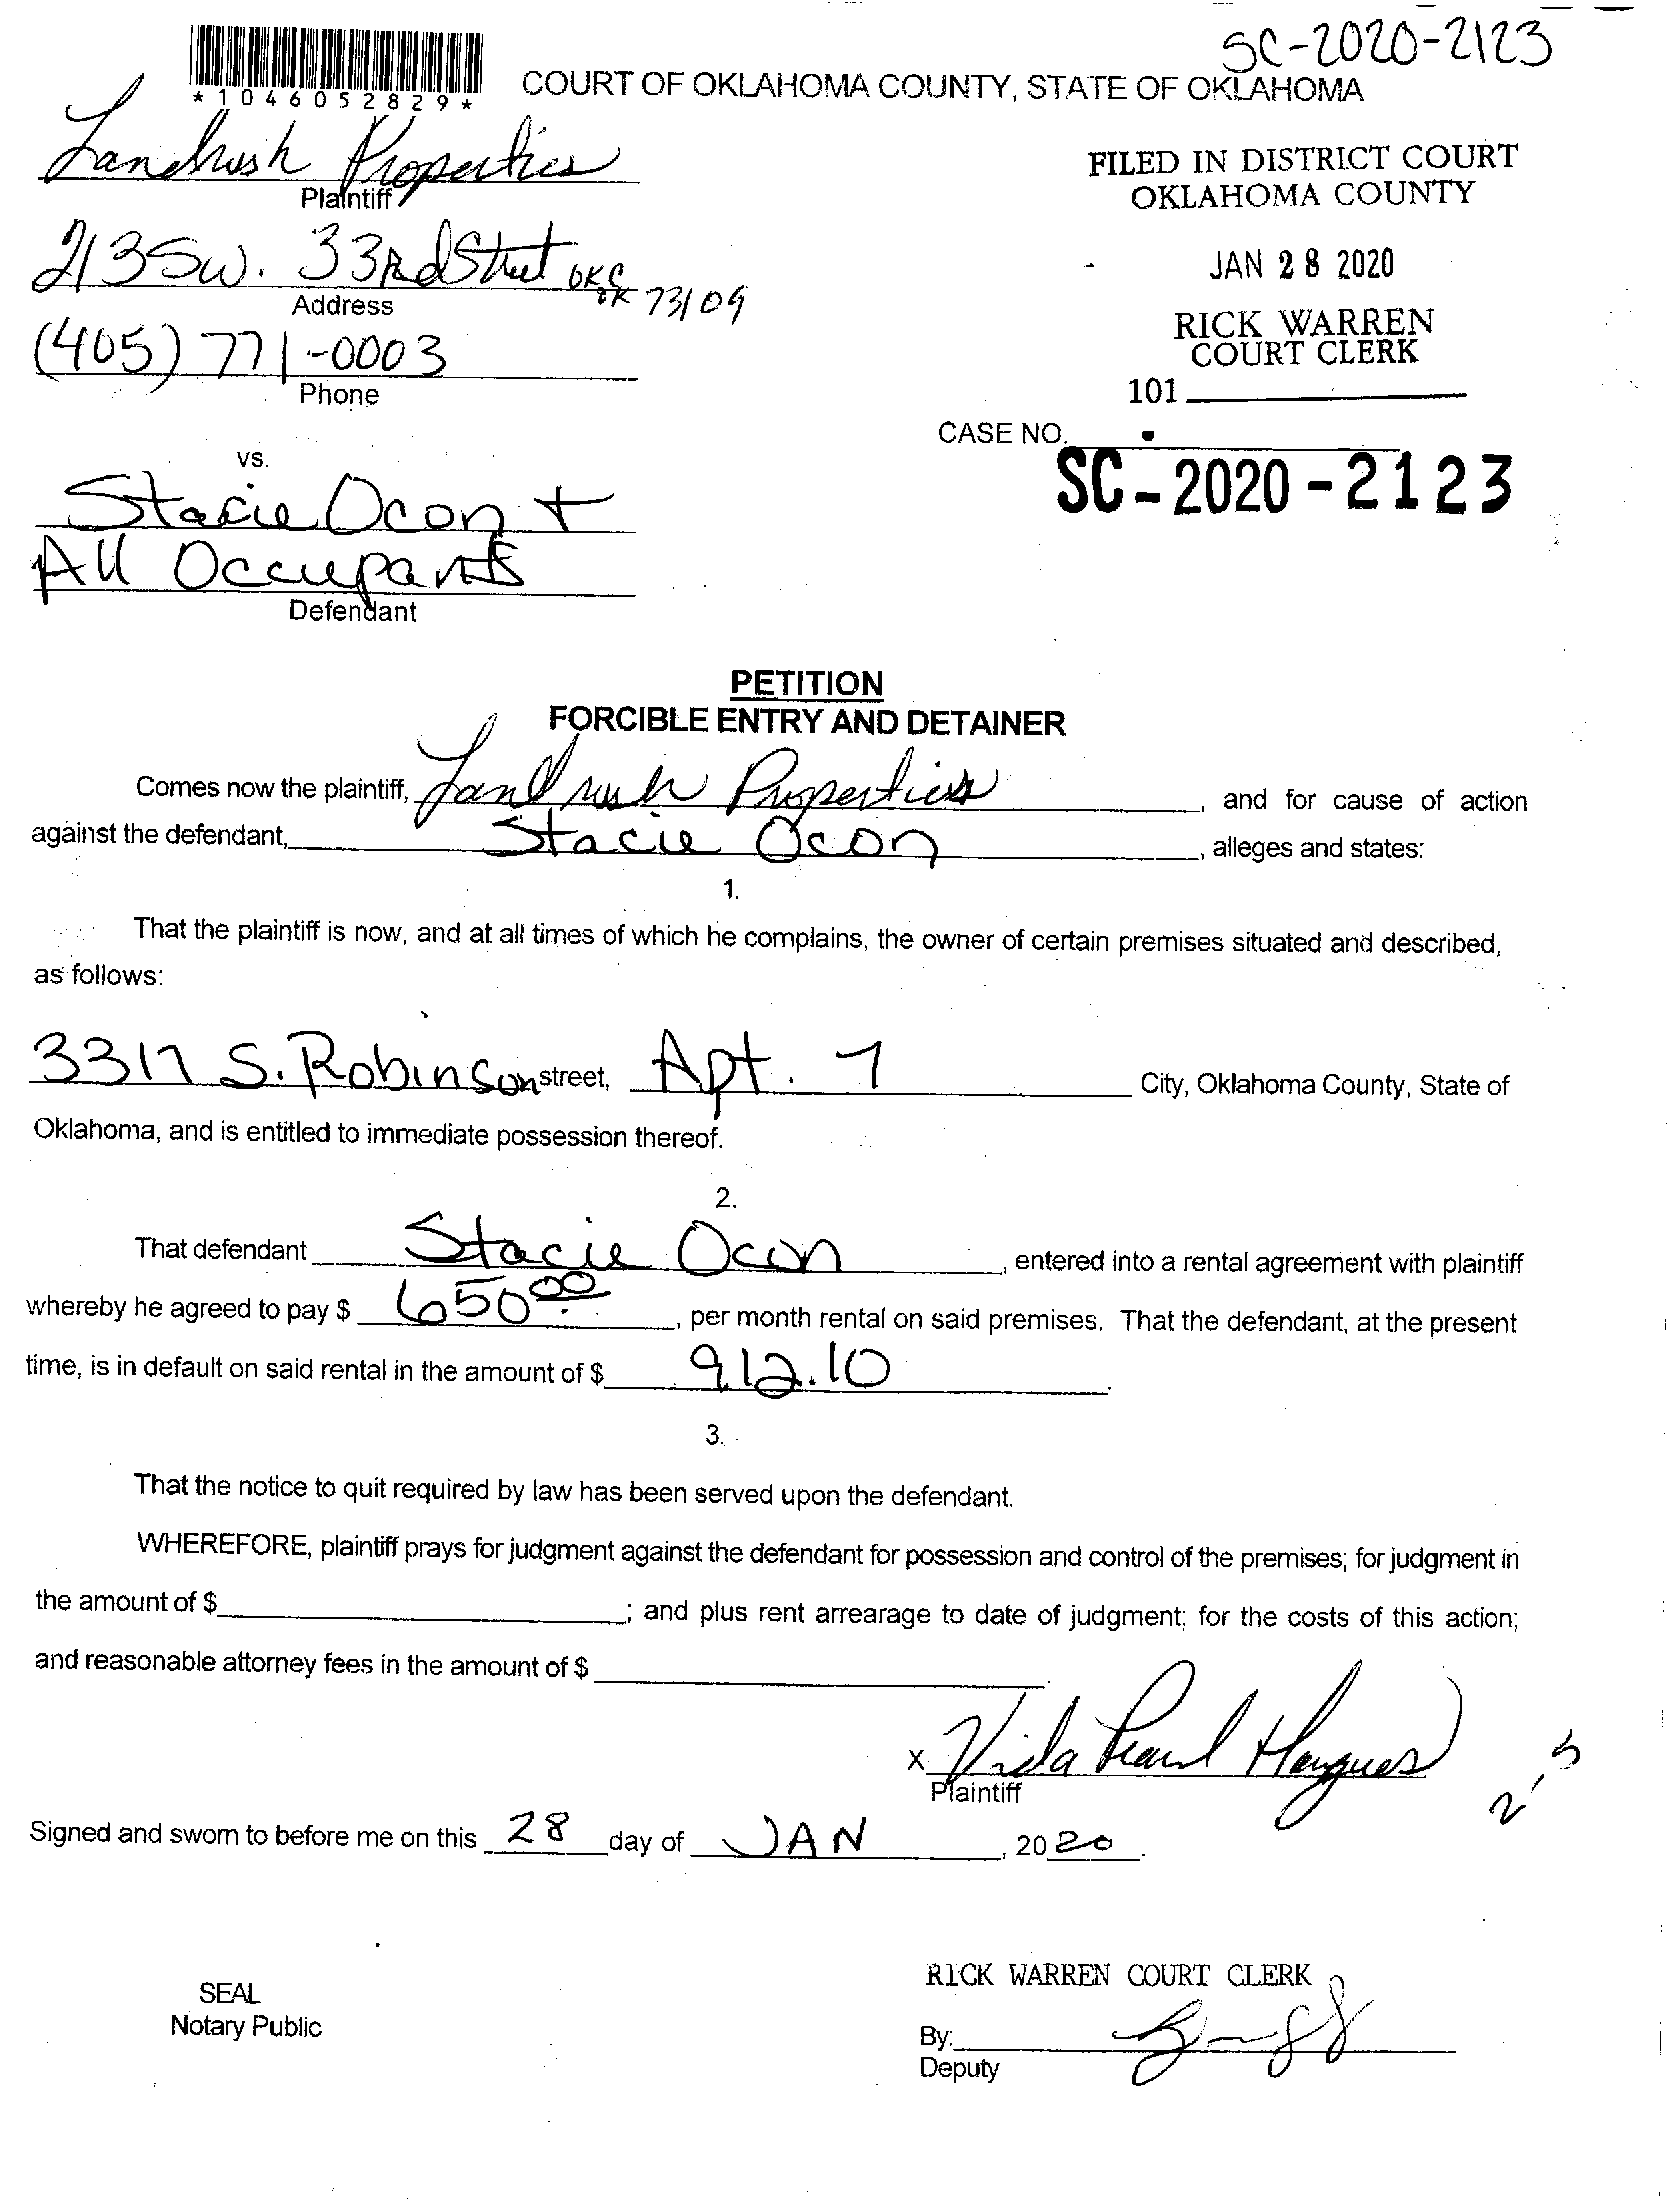 SC-2020-2123
*1046052829*
COURT OF OKLAHOMA COUNTY, STATE OF OKLAHOMA
Landrush Properties
Plaintiff
213 SW. 33Rd Street OKC OK 73109
Address
(405) 771-0003
Phone
FILED IN DISTRICT COURT
OKLAHOMA COUNTY
JAN 28 2020
RICK WARREN
COURT CLERK
101
CASE NO.
SC-2020-2123
vs.
Stacie Ocon +
All Occupants
Defendant
PETITION
FORCIBLE ENTRY AND DETAINER
Comes now the plaintiff, Landrush Properties, and for cause of action
against the defendant, Stacie Ocon, alleges and states:
1.
That the plaintiff is now, and at all times of which he complains, the owner of certain premises situated and described,
as follows:
3317 S. Robinson street, Apt. 7 City, Oklahoma County, State of
Oklahoma, and is entitled to immediate possession thereof.
2.
That defendant Stacie Ocon, entered into a rental agreement with plaintiff
whereby he agreed to pay $ 650.00, per month rental on said premises. That the defendant, at the present
time, is in default on said rental in the amount of $ 912.10.
3.
That the notice to quit required by law has been served upon the defendant.
WHEREFORE, plaintiff prays for judgment against the defendant for possession and control of the premises; for judgment in
the amount of $ ; and plus rent arrearage to date of judgment; for the costs of this action;
and reasonable attorney fees in the amount of $
X Vida Pearl
Plaintiff
2-5
Signed and sworn to before me on this 28 day of JAN, 2020.
SEAL
Notary Public
RICK WARREN COURT CLERK
By:
Deputy